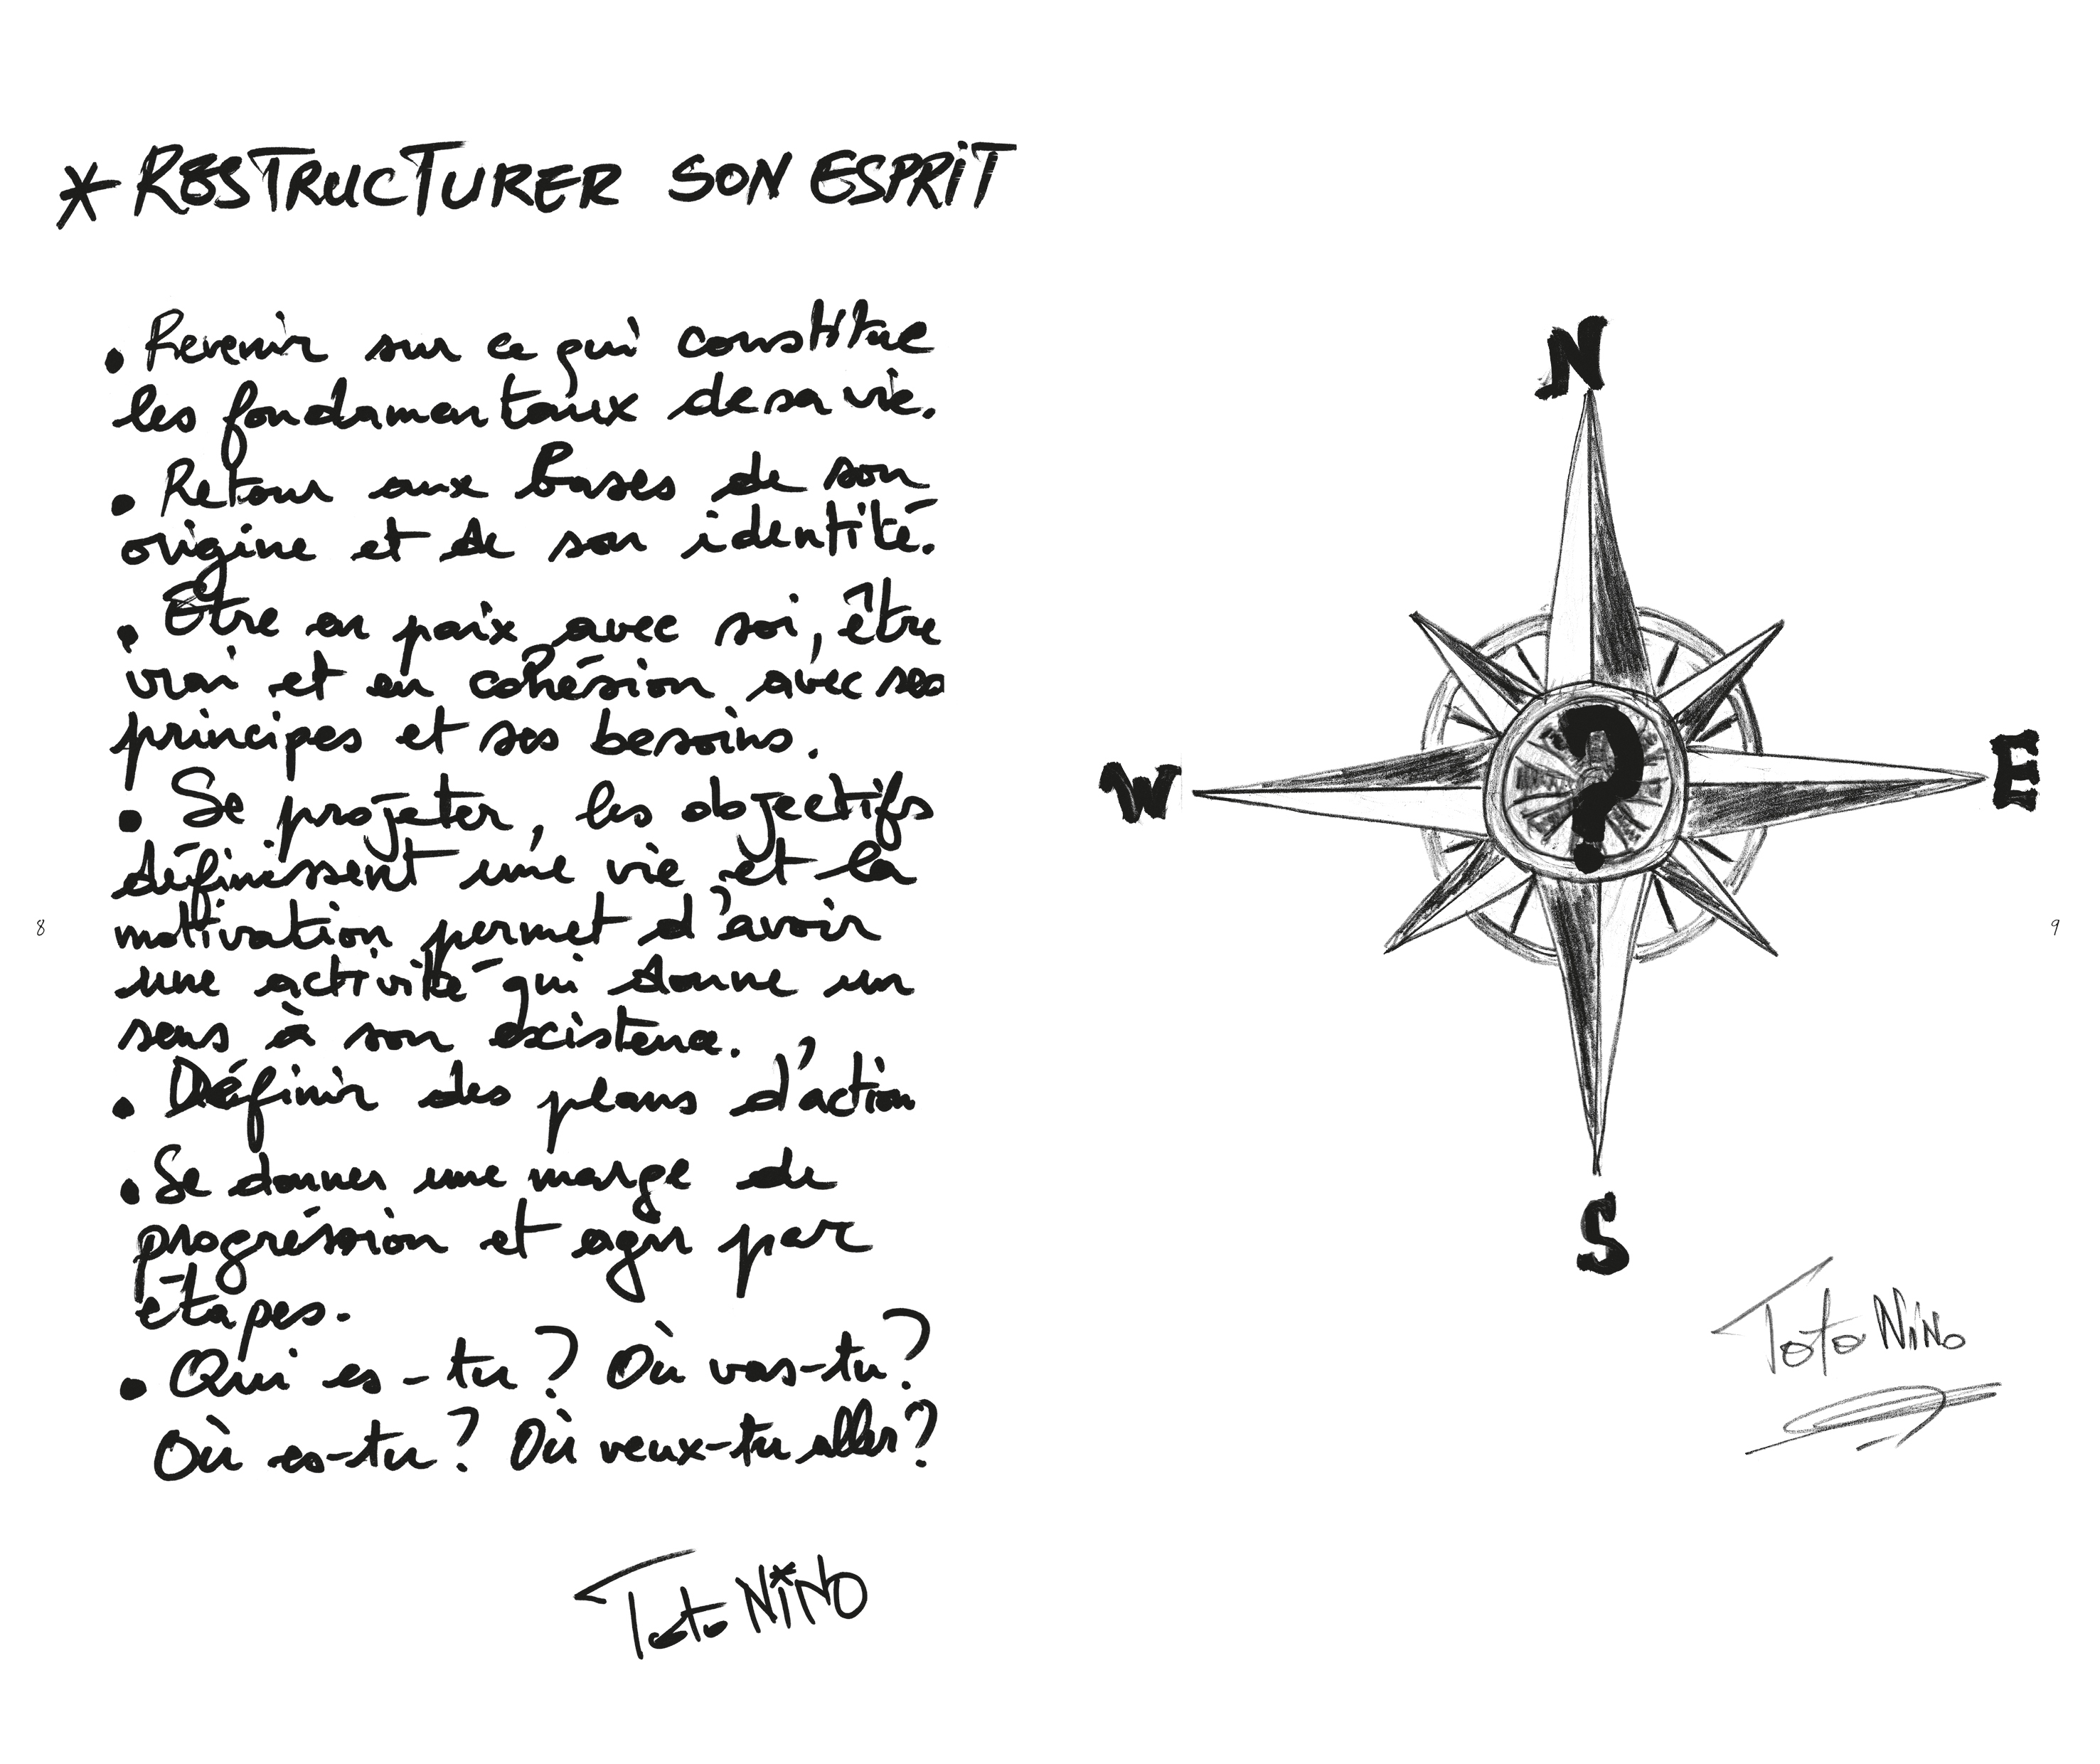 * RESTRUCTURER SON ESPRIT
• Revenir sur ce qui constitue
les fondamentaux de sa vie.
• Retour aux bases de son
origine et de son identité.
• Etre en paix avec soi, être
vrai et en cohésion avec ses
principes et ses besoins.
• Se projeter, les objectifs
définissent une vie et la
motivation permet d'avoir
une activité qui donne un
sens à son existence.
• Définir des plans d'action
• Se donner une marge de
progréssion et agir par
étapes.
• Qui es-tu ? Où vas-tu ?
Où es-tu ? Où veux-tu aller ?
Toto NiNo
8
N
W
?
E
S
Toto NiNo
9